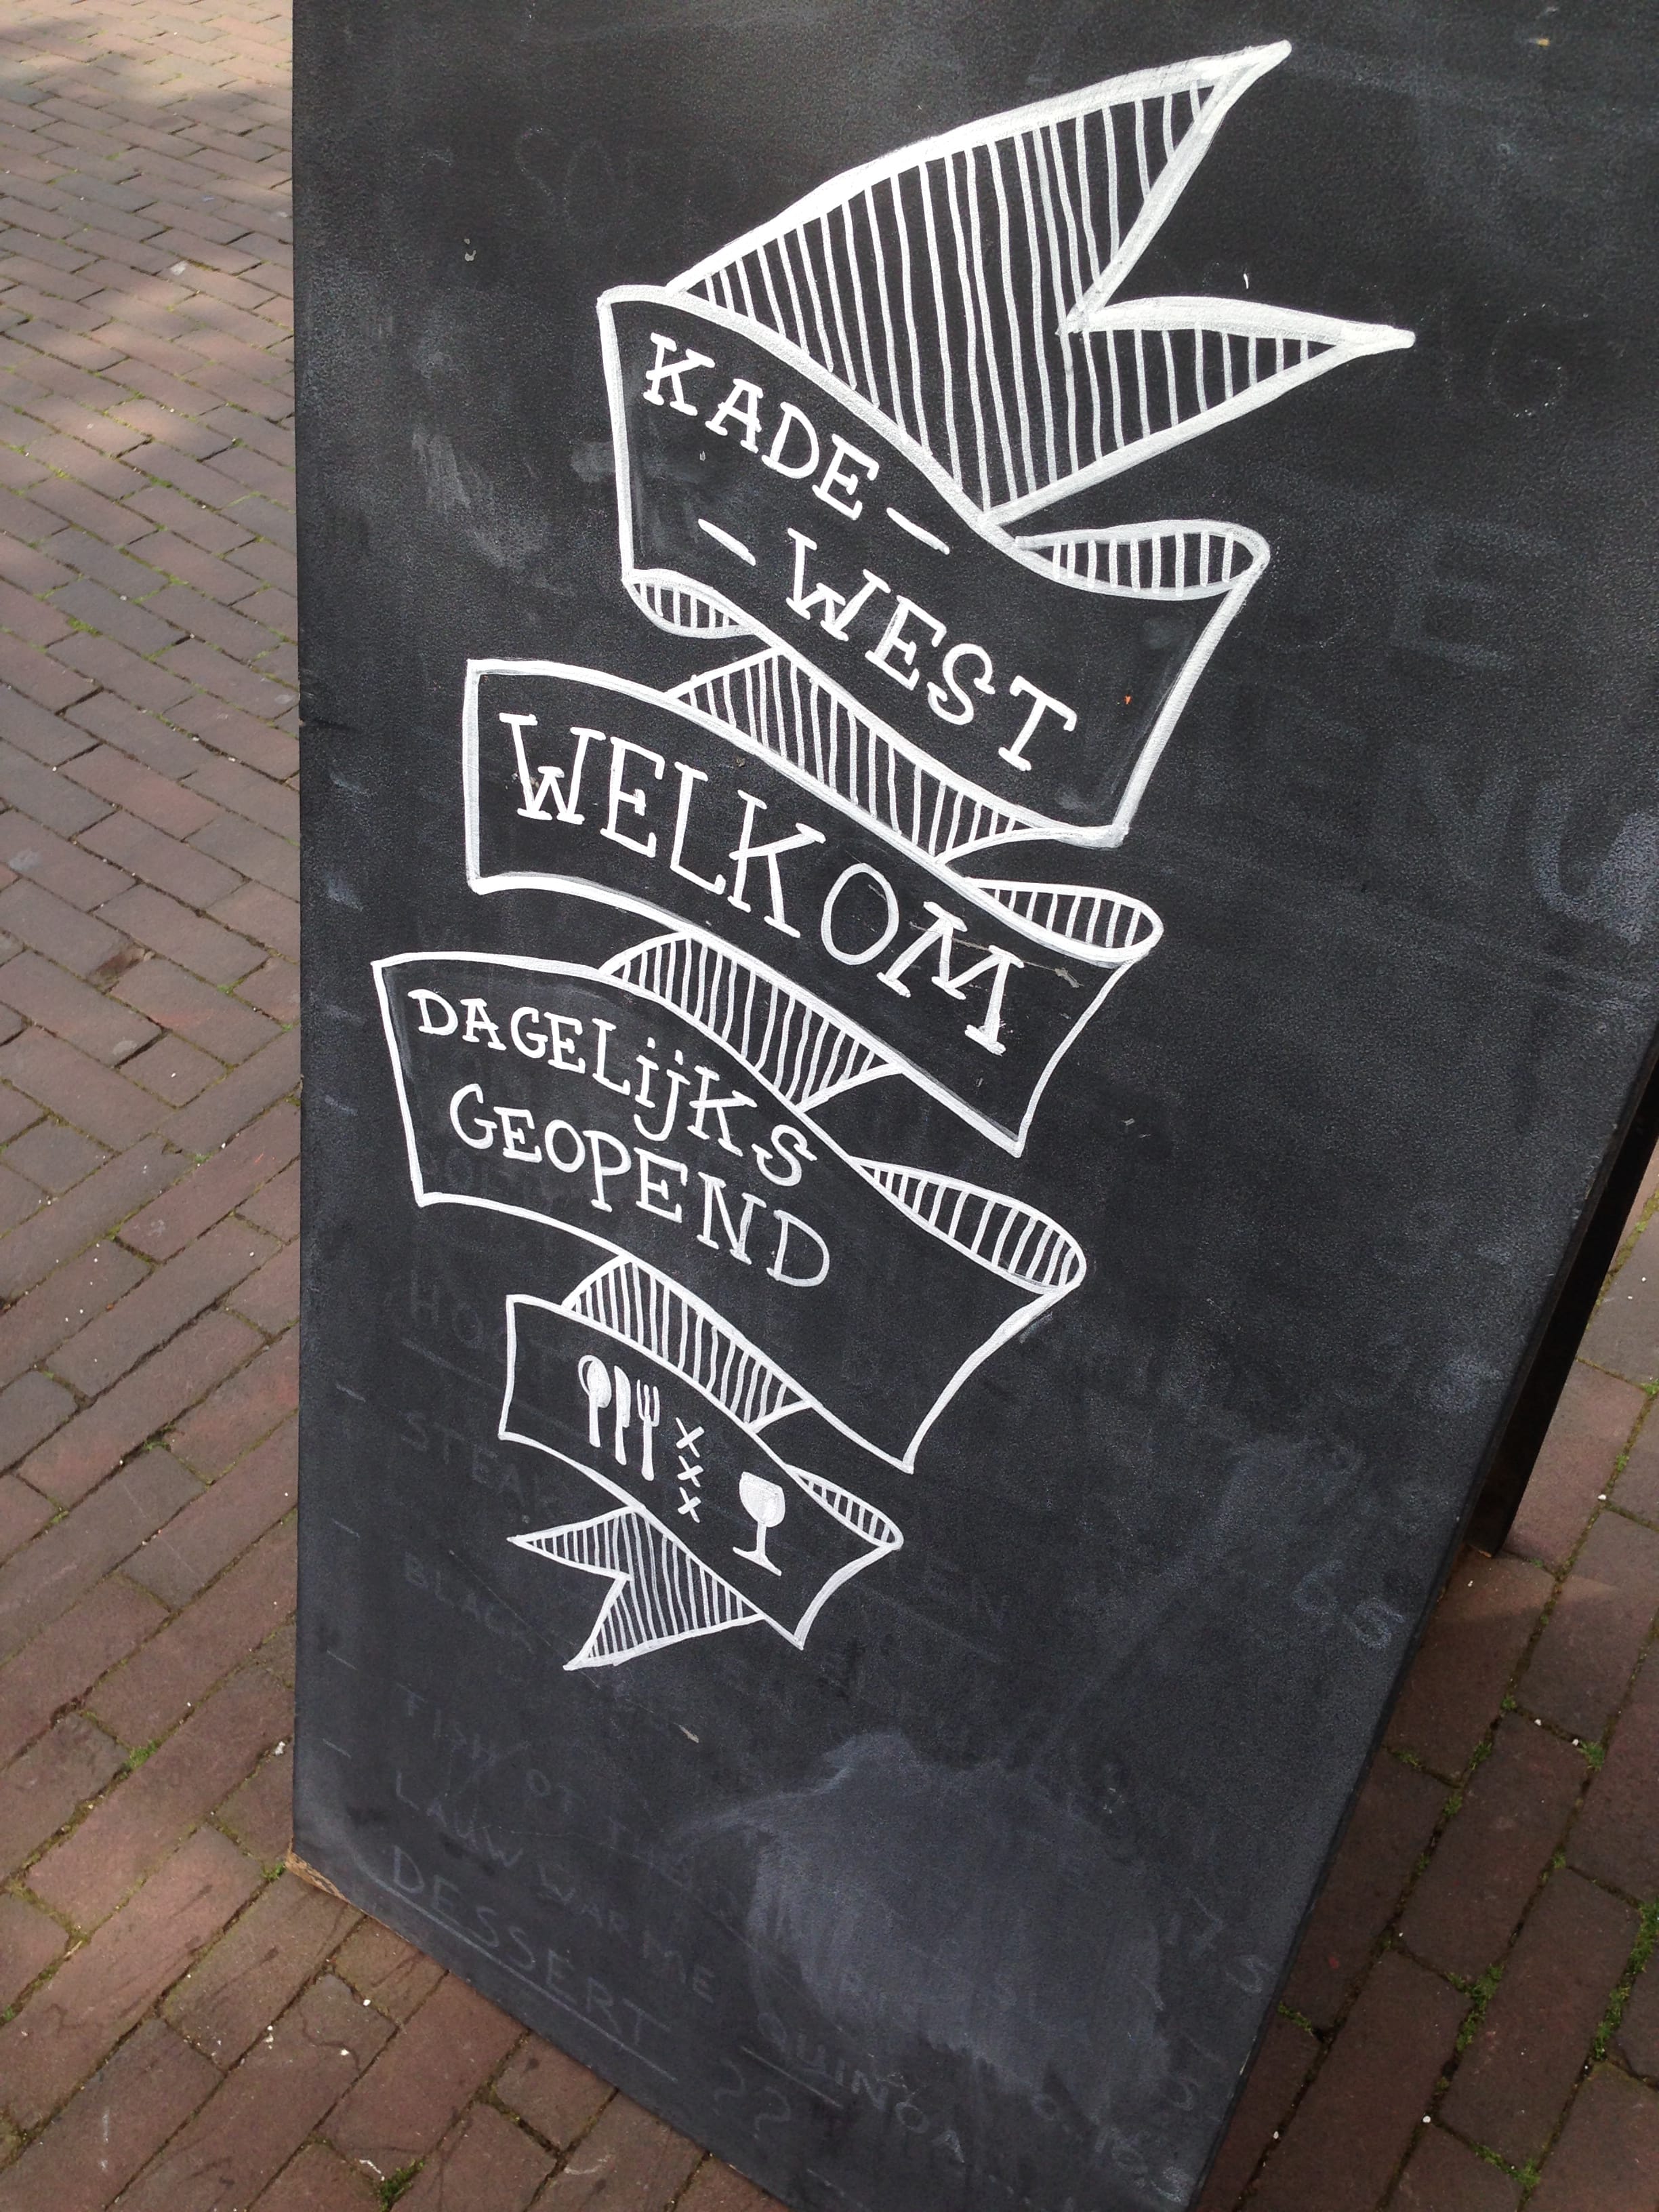 KADE-
-WEST
WELKOM
DAGELijKS
GEOPEND
XXX
STEAK
BLACK
LAUWWARME QUINOA
DESSERT ??